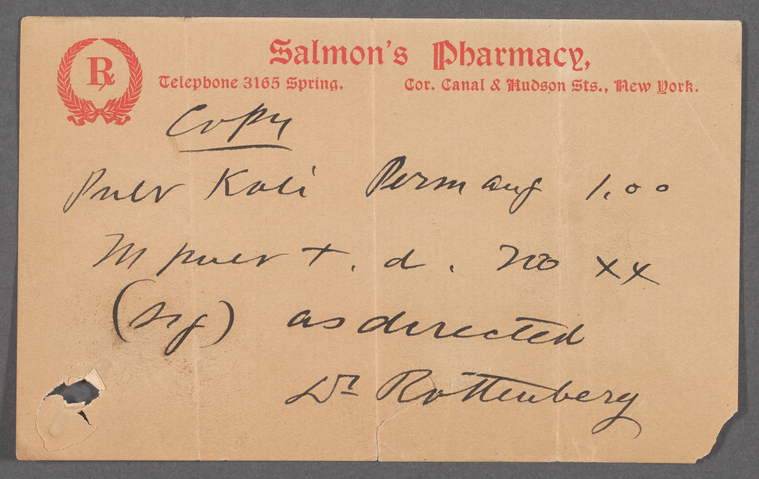 Salmon's Pharmacy,
Rx
Telephone 3165 Spring. Cor. Canal & Hudson Sts., New York.
Copy
Pulv Kali Permang 1.00
M pulv t. d. No XX
(Sig) as directed
Dr Rottenberg